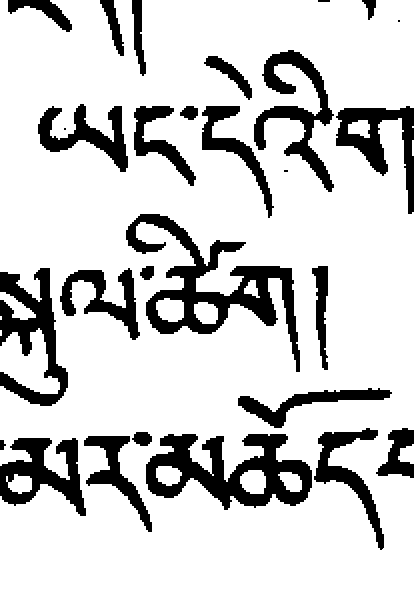 ཡང་དེའིག
སྐུལ་ཚིག།།
མར་མཆོད